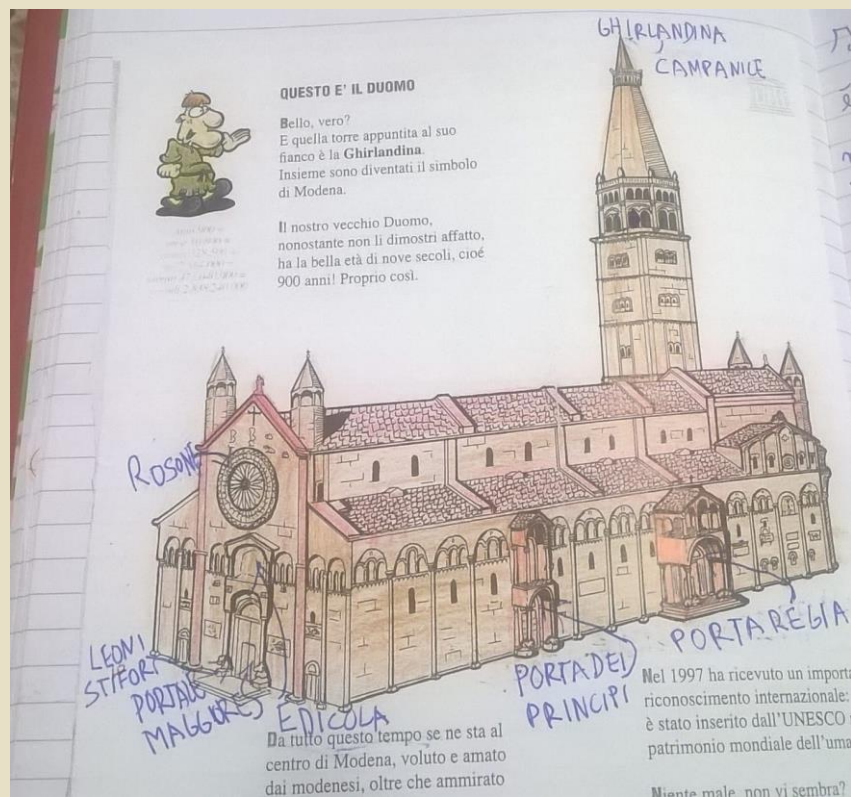 GHIRLANDINA
CAMPANICE
QUESTO E' IL DUOMO
Bello, vero?
E quella torre appuntita al suo
fianco è la Ghirlandina.
Insieme sono diventati il simbolo
di Modena.
Il nostro vecchio Duomo,
nonostante non li dimostri affatto,
ha la bella età di nove secoli, cioé
900 anni! Proprio così.
ROSONE
LEONI
STIFORI
PORTALE
MAGGIORE
EDICOLA
PORTA DEI
PRINCIPI
PORTA REGIA
Da tutto questo tempo se ne sta al
centro di Modena, voluto e amato
dai modenesi, oltre che ammirato
Nel 1997 ha ricevuto un importa
riconoscimento internazionale:
è stato inserito dall'UNESCO
patrimonio mondiale dell'uma
Niente male, non vi sembra?